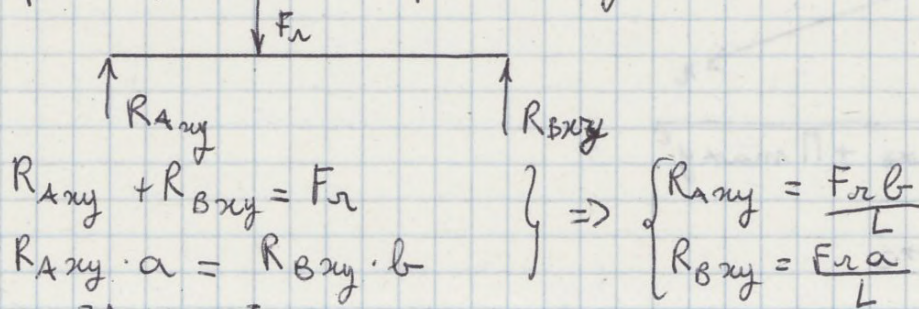 Fr
RAxy RBxy
RAxy + RBxy = Fr } => { RAxy = Fr b / L
RAxy · a = RBxy · b RBxy = Fr a / L